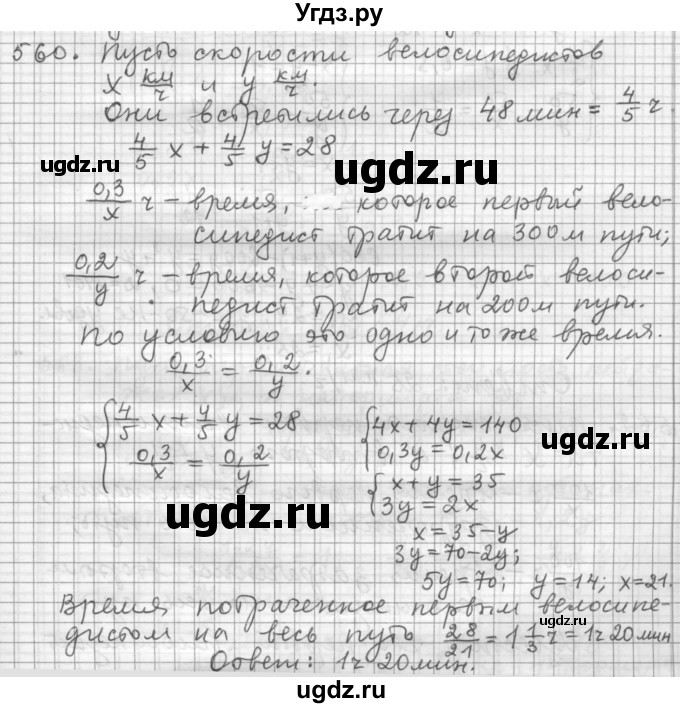 Угдз.ру
560. Пусть скорости велосипедистов
x км/ч и y км/ч.
Они встретились через 48 мин = 4/5 ч
4/5 x + 4/5 y = 28
ugdz.ru ugdz.ru
0,3/x ч – время, которое первый вело-
сипедист тратит на 300 м пути;
ugdz.ru
0,2/y ч – время, которое второй велоси-
педист тратит на 200 м пути.
По условию это одно и то же время.
0,3/x = 0,2/y.
{ 4/5 x + 4/5 y = 28
0,3/x = 0,2/y
{ 4x + 4y = 140
0,3y = 0,2x
ugdz.ru
{ x + y = 35
3y = 2x
ugdz.ru
x = 35 – y
3y = 70 – 2y;
5y = 70; y = 14; x = 21.
Время потраченное первым велосипе-
дистом на весь путь 28/21 = 1 1/3 ч = 1ч 20 мин
Ответ: 1ч 20 мин.
ugdz.ru ugdz.ru
ugdz.ru